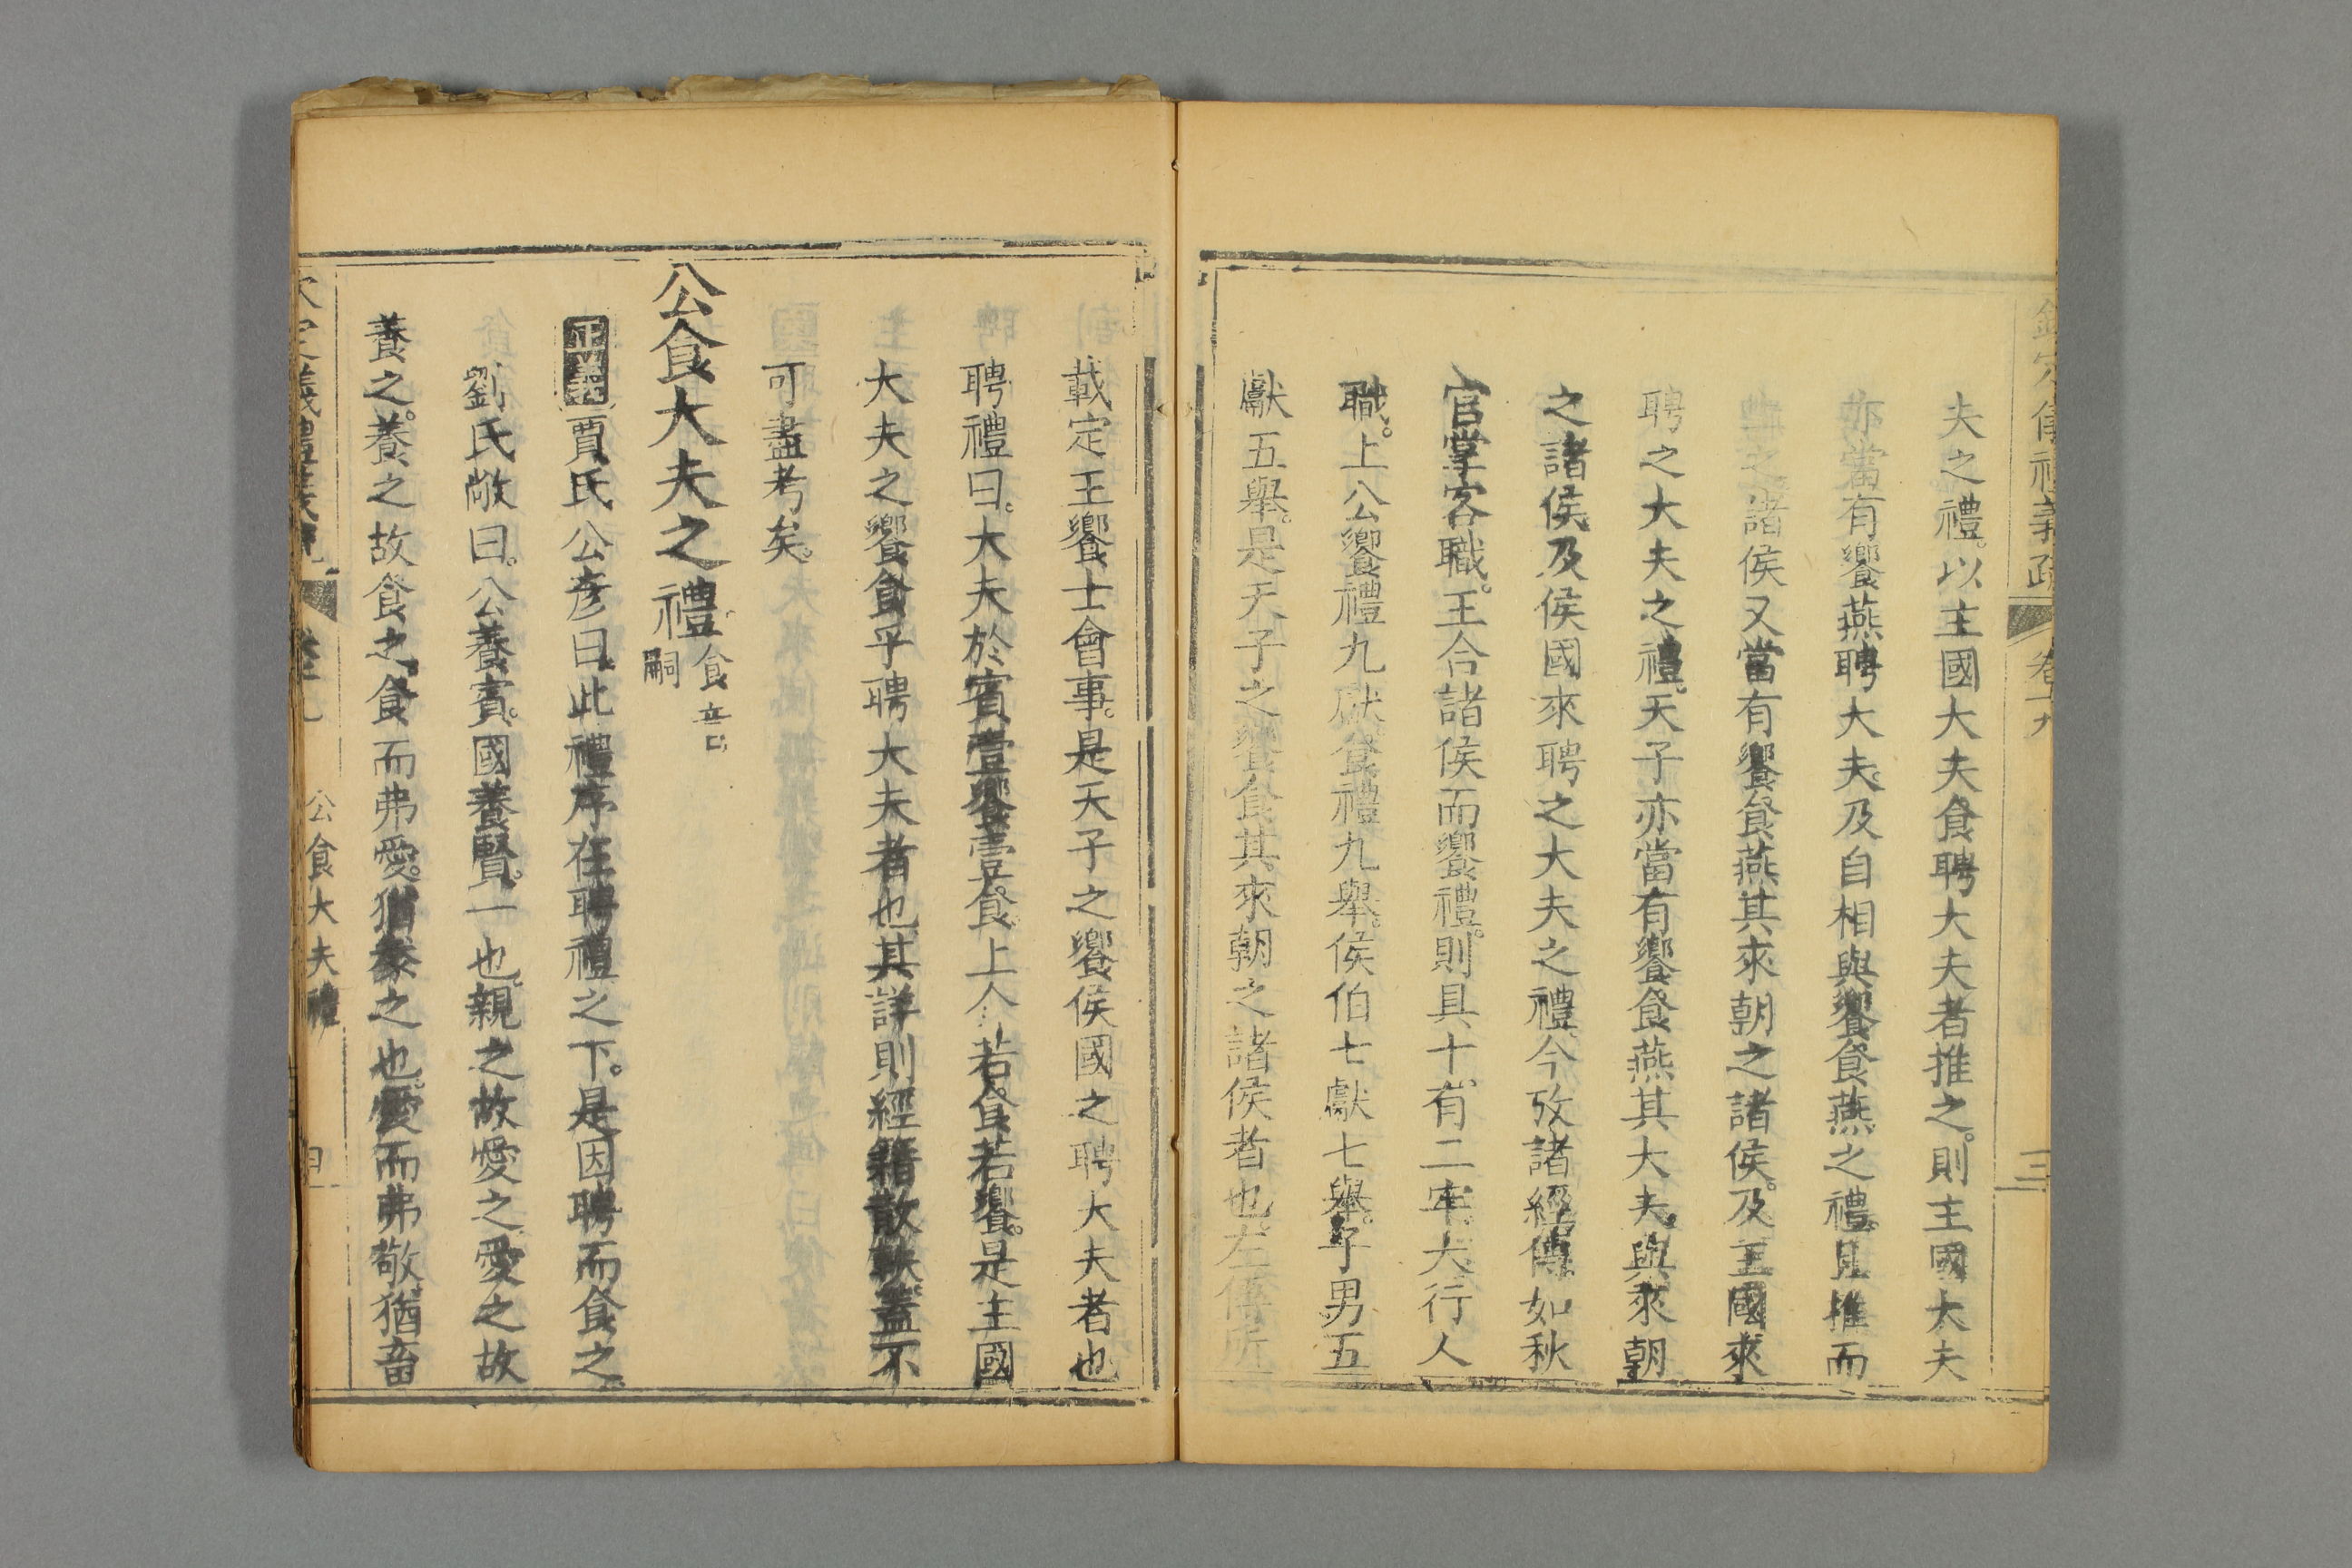 義疏
夫之禮。以主國大夫食聘大夫者推之。則主國大夫
亦當有饗燕聘大夫。及自相與饗食燕之禮。且推而
之。諸侯又當有饗食燕其來朝之諸侯。及主國來
聘之大夫之禮。天子亦當有饗食燕其大夫。與來朝
之諸侯。及侯國來聘之大夫之禮。今攷諸經傳。如秋
官掌客職。王合諸侯而饗禮。則具十有二牢。大行人
職。上公饗禮九獻。食禮九舉。侯伯七獻七舉。子男五
獻五舉。是天子之饗食其來朝之諸侯者也。左傳所
載定王饗士會事。是天子之饗侯國之聘大夫者也
聘禮曰。大夫於賓壹饗壹食。上介若食若饗。是主國
大夫之饗食乎聘大夫者也。其詳則經籍散軼。蓋不
可盡考矣。
公食大夫之禮。食音嗣
正義賈氏公彥曰。此禮序在聘禮之下。是因聘而食之。
劉氏敞曰。公養賓。國養賢。一也。親之故愛之。愛之故
養之。養之故食之。食而弗愛。猶豢之也。愛而弗敬。猶畜
公食大夫禮